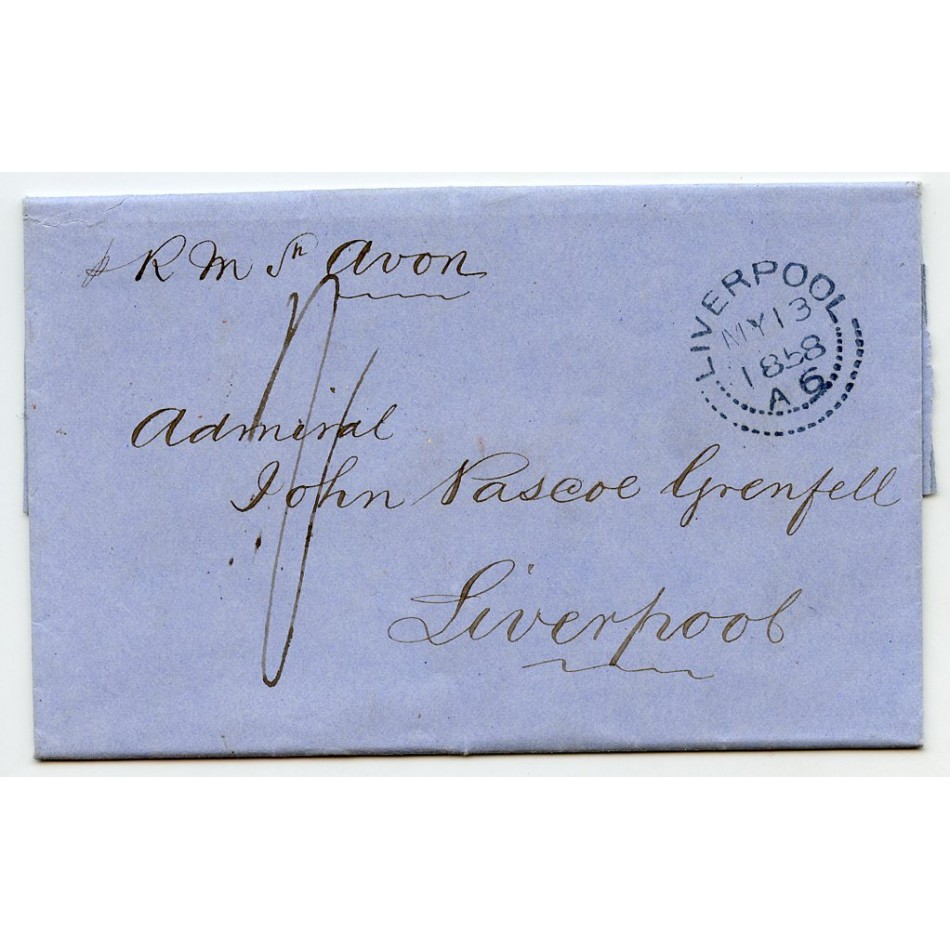 p R M Sr Avon
LIVERPOOL
MY 13
1858
A 6
1/
Admiral
John Pascoe Grenfell
Liverpool